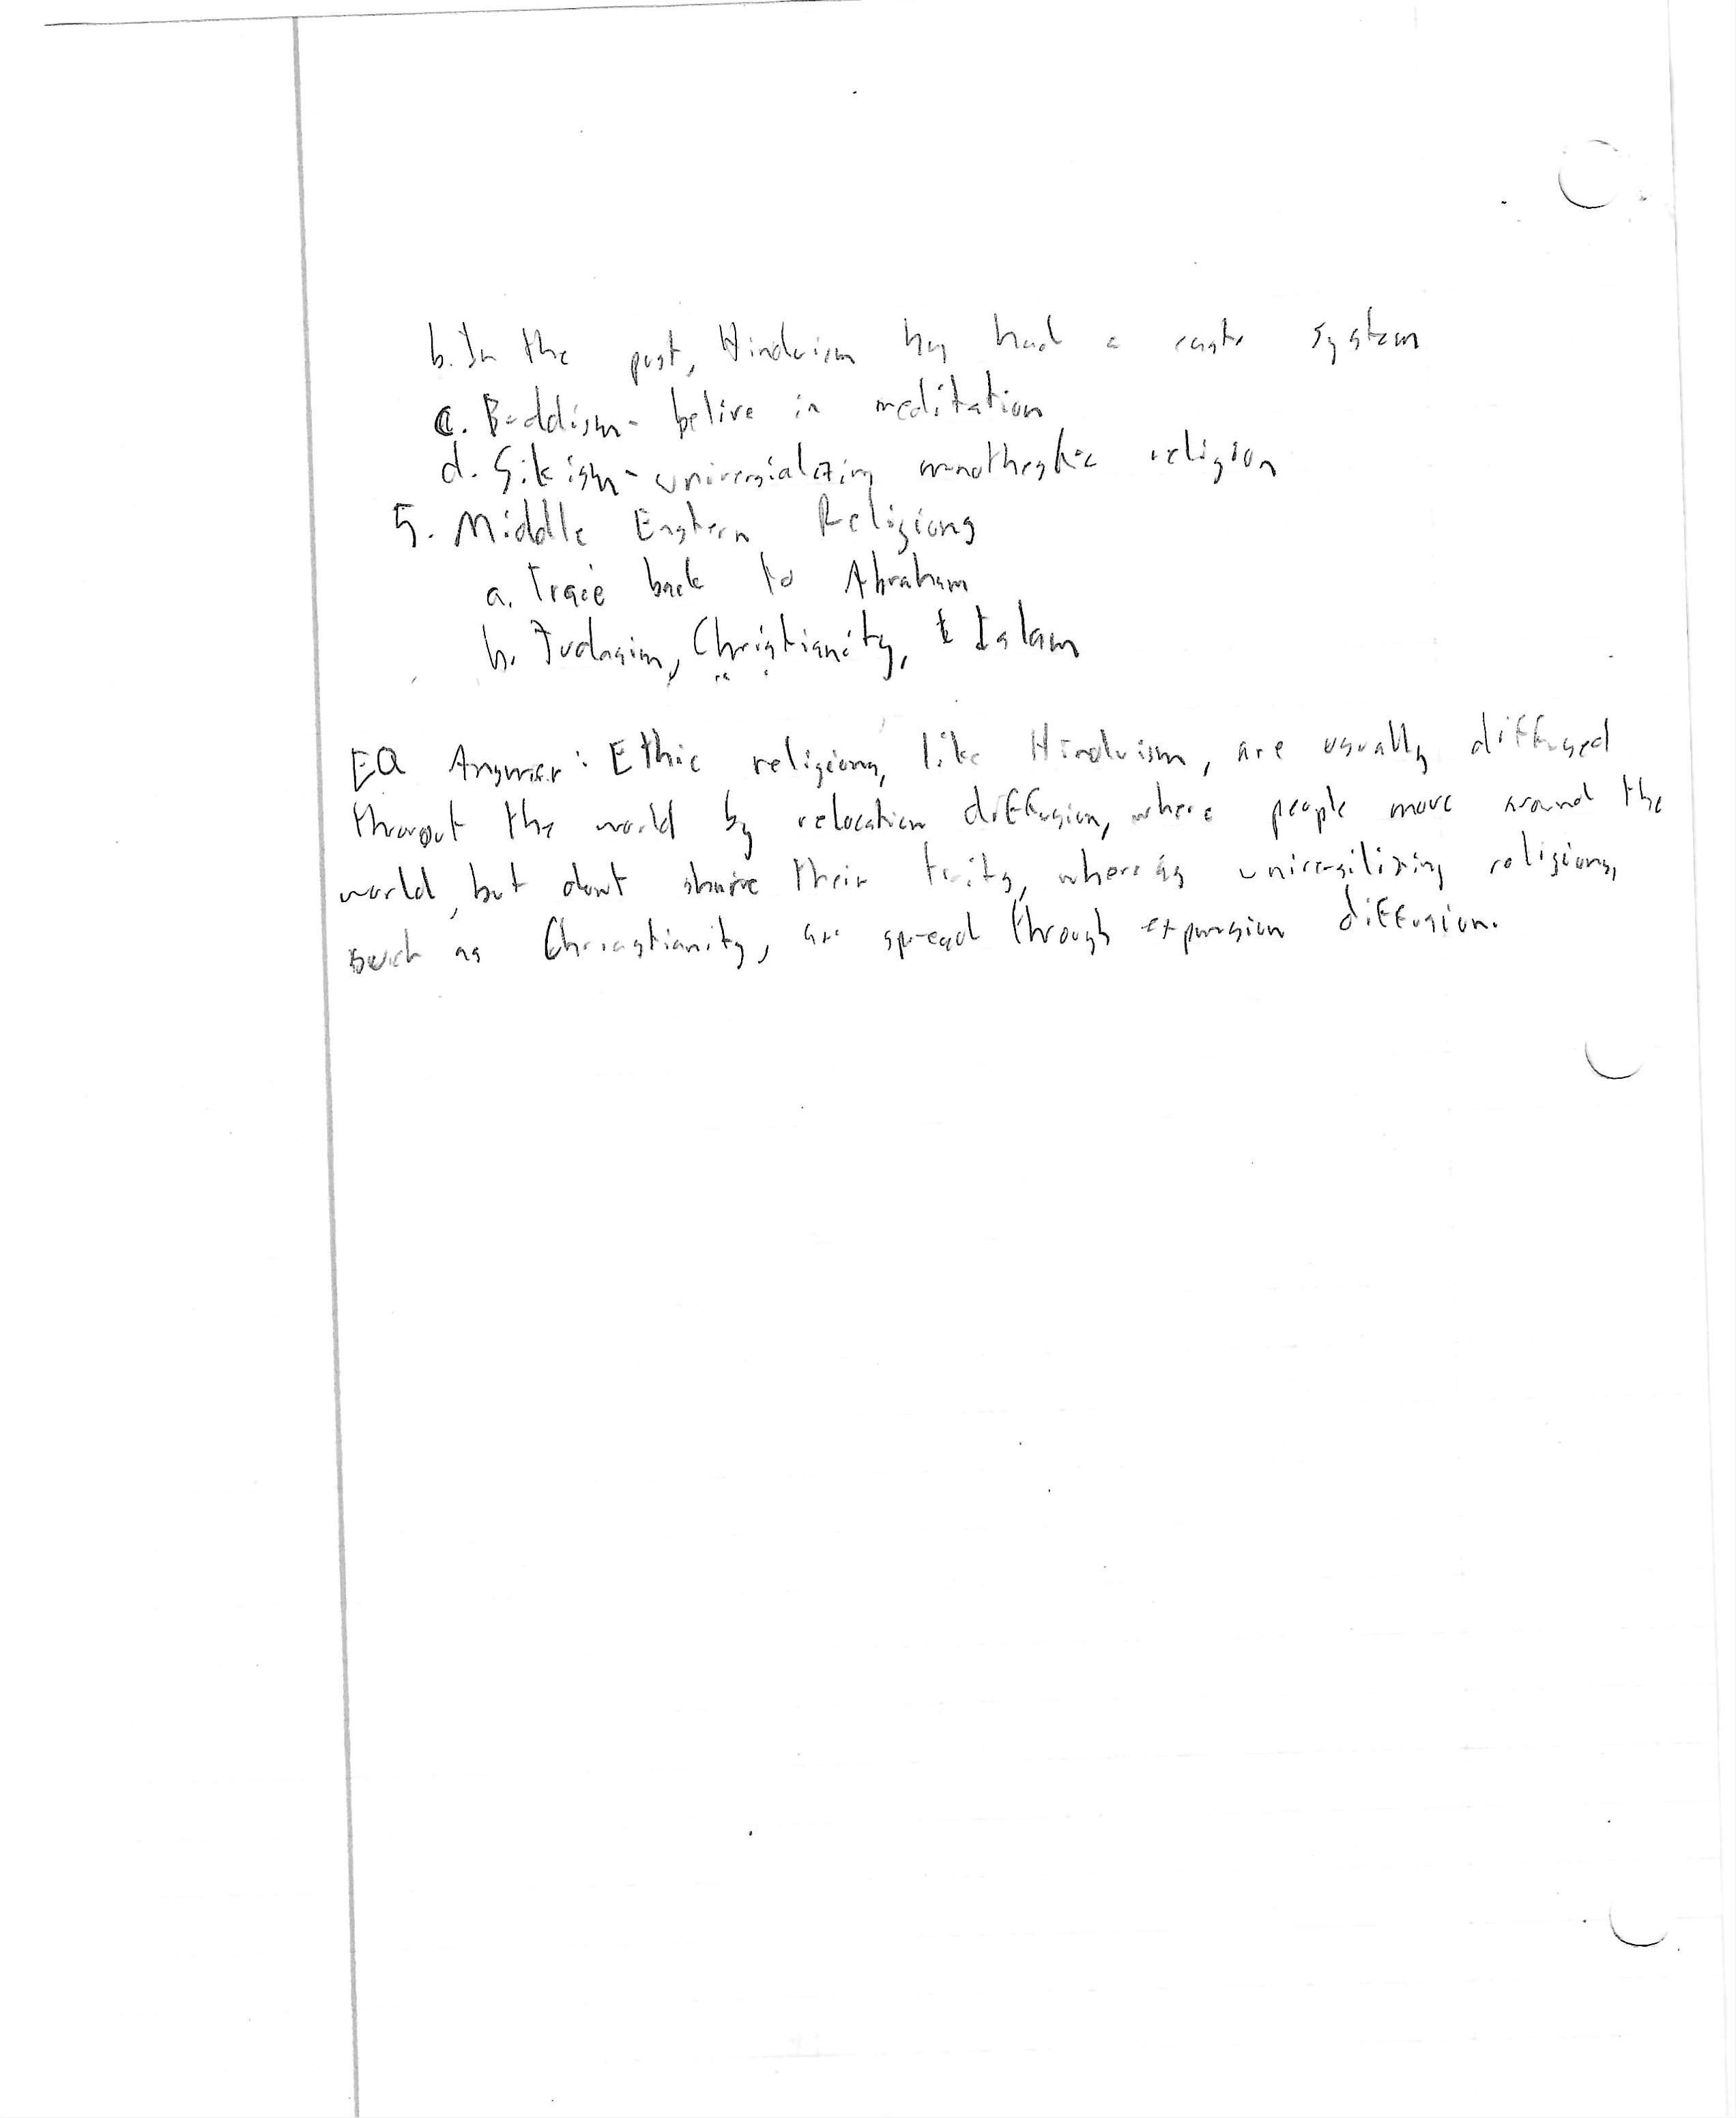 b. In the past, Hinduism has had a caste system
c. Buddism - belive in meditation
d. Sikism - universializing monothestic religion
5. Middle Eastern Religions
a. Trace back to Abraham
b. Judasim, Christianity, & Islam
EQ Answer: Ethic religions, like Hinduism, are usually diffused
throuout the world by relocation diffusion, where people move around the
world, but dont share their traits, whereas universilizing religions,
such as Chriastianity, are spread through expansion diffusion.